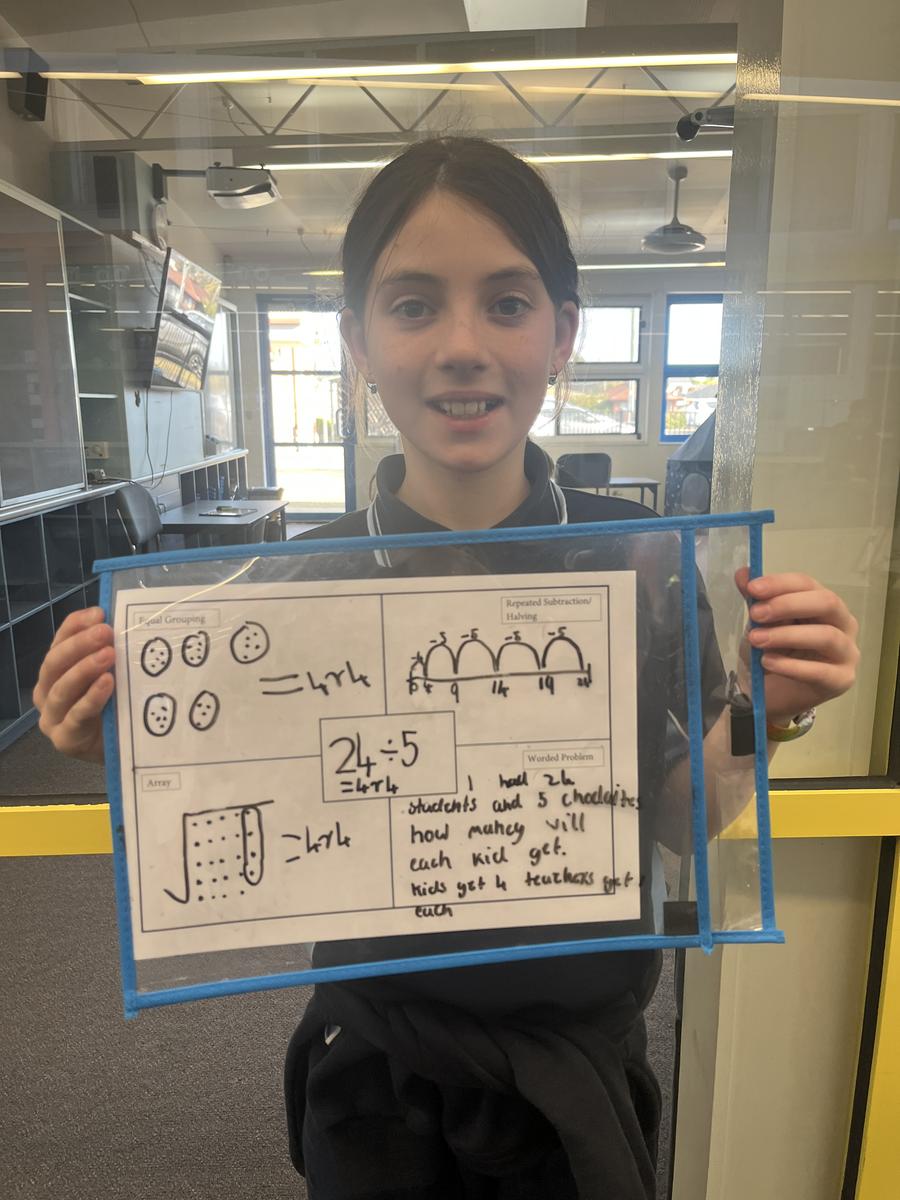 Equal Grouping
=4r4
Repeated Subtraction/
Halving
-5 -5 -5 -5
4 9 14 19 24
24÷5
=4r4
Array
=4r4
Worded Problem
I had 24
students and 5 choclaites
how maney will
each kid get.
kids get 4 teachers get 1
each